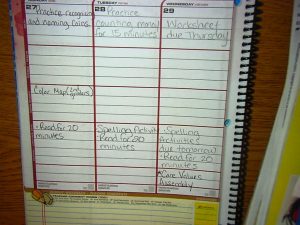 27
Practice recognizing
and naming Coins
Color Map (2nd
graders)
-Read for 20
minutes
TUESDAY
28 Practice
Counting money
for 15 minutes
Spelling Activity
-Read for 20
minutes
WEDNESDAY
29
Worksheet
due Thursday
-Spelling
Activities
due tomorrow
-Read for 20
minutes
*Core Values
Assembly